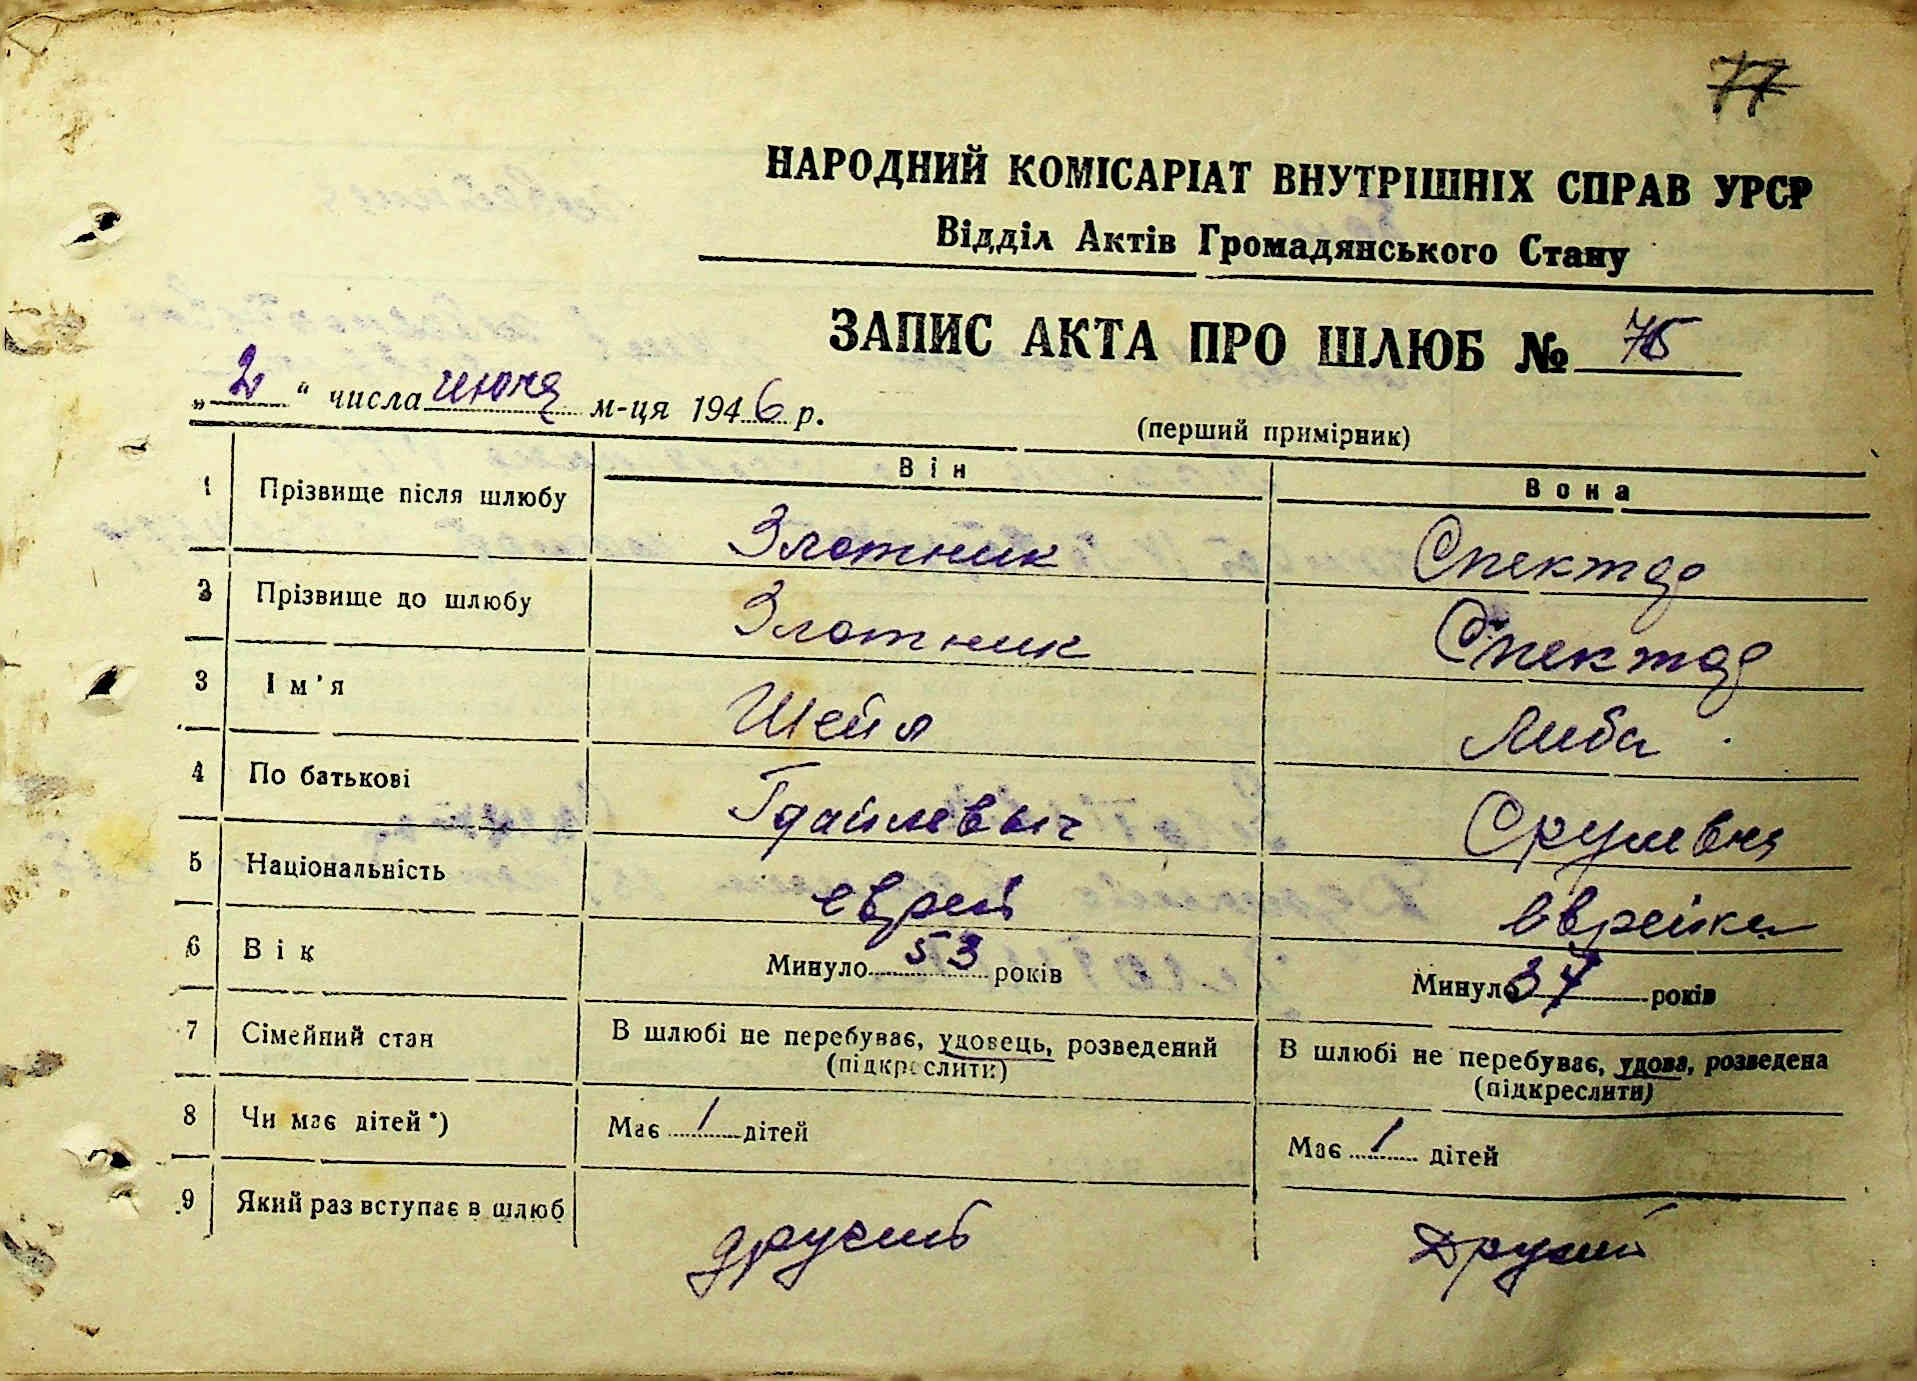 77
НАРОДНИЙ КОМІСАРІАТ ВНУТРІШНІХ СПРАВ УРСР
Відділ Актів Громадянського Стану
ЗАПИС АКТА ПРО ШЛЮБ № 75
„ 2 “ числа июня м-ця 1946 р.
(перший примірник)
Він Вона
1 Прізвище після шлюбу Злотник Спектор
2 Прізвище до шлюбу Злотник Спектор
3 Ім'я Шейл Либа
4 По батькові Срулевна
5 Національність еврей еврейка
6 Вік Минуло 53 років Минуло 37 років
7 Сімейний стан В шлюбі не перебуває, удовець, розведений В шлюбі не перебуває, удова, розведена
(підкреслити) (підкреслити)
8 Чи має дітей*) Має 1 дітей Має 1 дітей
9 Який раз вступає в шлюб другий Другий